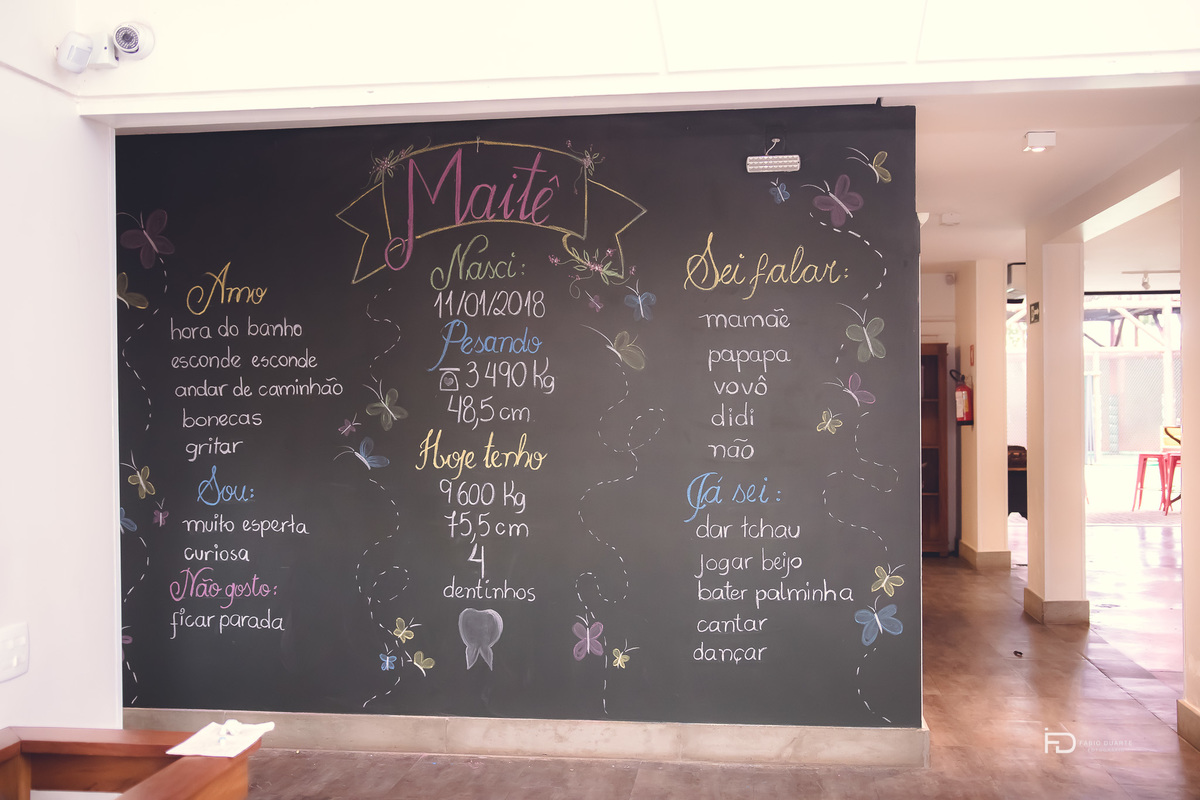 Maitê
Amo
hora do banho
esconde esconde
andar de caminhão
bonecas
gritar
Sou:
muito esperta
curiosa
Não gosto:
ficar parada
Nasci:
11/01/2018
Pesando
3 490 Kg
48,5 cm
Hoje tenho
9 600 Kg
75,5 cm
4
dentinhos
Sei falar:
mamãe
papapa
vovô
didi
não
Já sei:
dar tchau
jogar beijo
bater palminha
cantar
dançar
FD
FABIO DUARTE